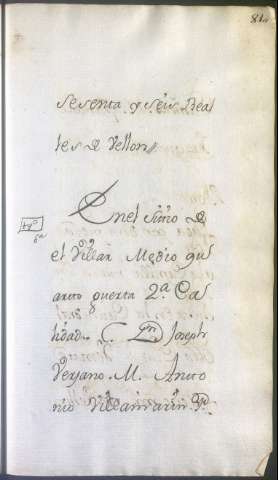 81
sesenta y seis Real
les de Vellon //
En el sitio de
el Villar Medio qu
arto guerta 2.ª Ca
lidad Joseph
Verjano. M. Anto
nio Villamarin